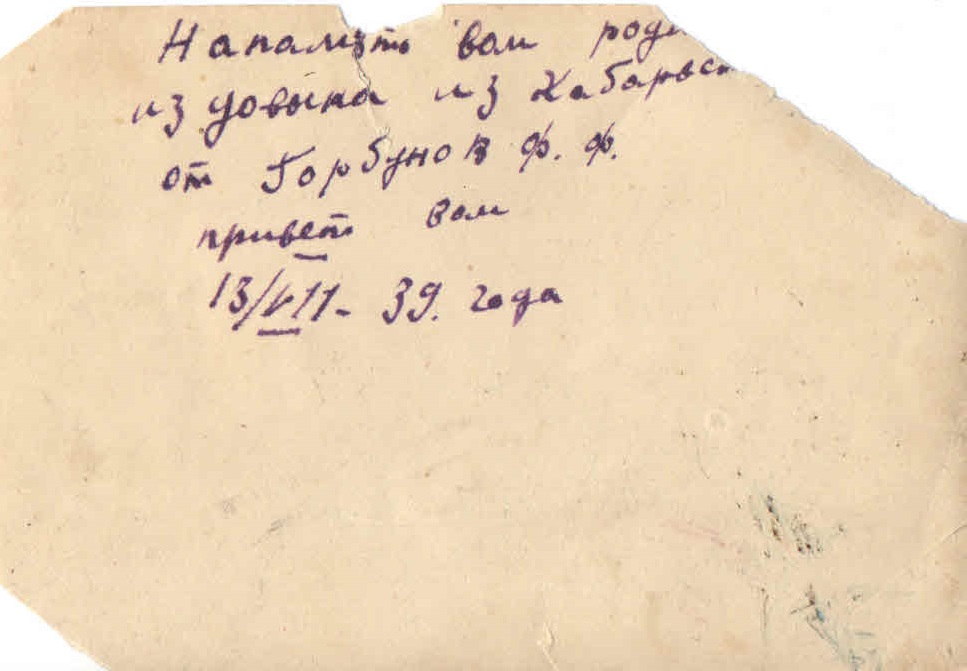 Напамять вам роди
из довына из Хабаровск
от Горбунов Ф. Ф.
привет вам
13/VII - 39. года